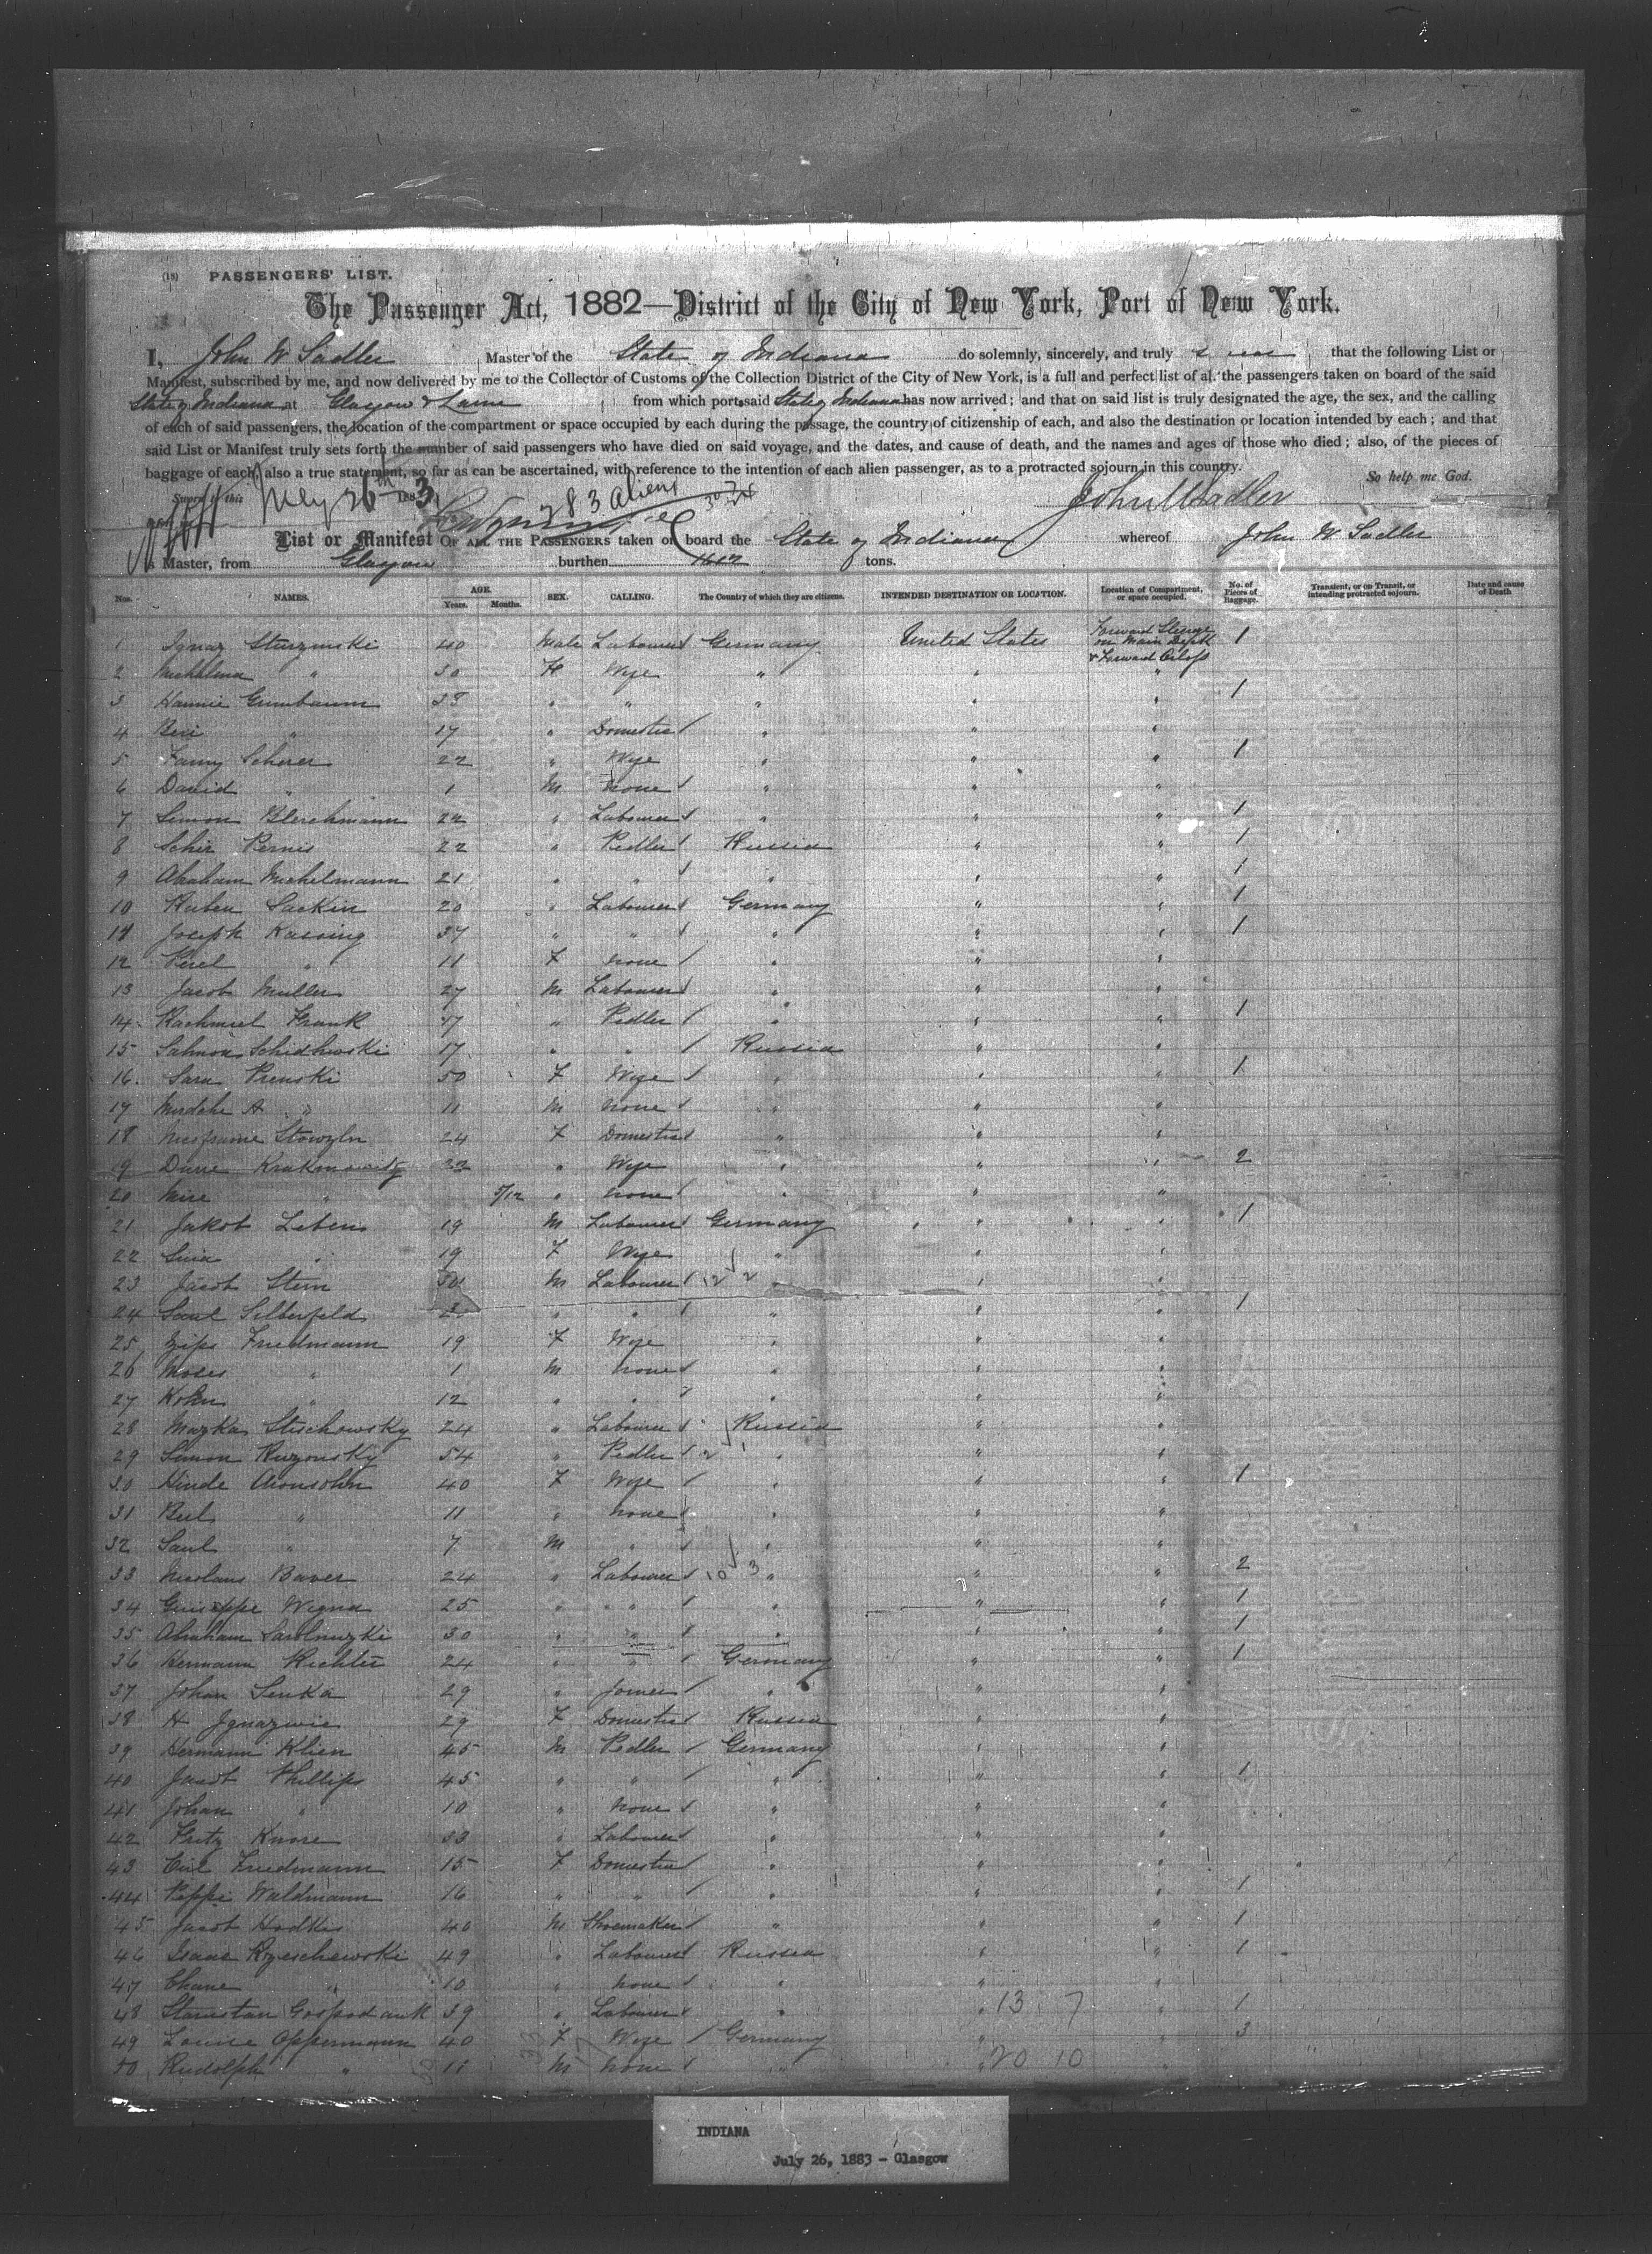 (18) PASSENGERS' LIST.
The Passenger Act, 1882—District of the City of New York, Port of New York.
I, John W Sadler Master of the State of Indiana do solemnly, sincerely, and truly swear that the following List or
Manifest, subscribed by me, and now delivered by me to the Collector of Customs of the Collection District of the City of New York, is a full and perfect list of all the passengers taken on board of the said
State of Indiana at Glasgow & Larne from which port said State of Indiana has now arrived; and that on said list is truly designated the age, the sex, and the calling
of each of said passengers, the location of the compartment or space occupied by each during the passage, the country of citizenship of each, and also the destination or location intended by each; and that
said List or Manifest truly sets forth the number of said passengers who have died on said voyage, and the dates, and cause of death, and the names and ages of those who died; also, of the pieces of
baggage of each, also a true statement, so far as can be ascertained, with reference to the intention of each alien passenger, as to a protracted sojourn in this country.
So help me God.
Sworn to this July 26th 1883 283 Aliens John W Sadler
List or Manifest OF ALL THE PASSENGERS taken on board the State of Indiana whereof John W Sadler
is Master, from Glasgow burthen 1612 tons.
Nos. NAMES. AGE. Years. Months. SEX. CALLING. The Country of which they are citizens. INTENDED DESTINATION OR LOCATION. Location of Compartment, or space occupied. No. of Pieces of Baggage. Transient, or on Transit, or intending protracted sojourn. Date and cause of Death
1 Ignaz 40 Male Labourer Germany United States Forward Steerge on Main Deck & Forward Orlop 1
2 " 30 F Wife " " "
3 Hannie Grunbaum 38 " " " " " 1
4 " 17 " Domestic " " "
5 Fanny Scherer 22 " Wife " " " 1
6 David " 1 M None " " "
7 Simon Bleichmann 22 " Labourer " " " 1
8 Scher Pernis 22 " Pedler Russia " " 1
9 Abraham Michelmann 21 " " " " " 1
10 Ruben Sackin 20 " Labourer Germany " " 1
11 Joseph Kassing 37 " " " " " 1
12 Perel " 11 F None " " "
13 Jacob Muller 27 M Labourer " " "
14 Rachmiel Frank 47 " Pedler " " " 1
15 17 " " Russia " "
16 Sara Prenski 50 F Wife " " " 1
17 A " 11 M None " " "
18 24 F Domestic " " "
19 " Wife " " " 2
20 Mire " 5/12 " None " " "
21 Jakob Lebens 19 M Labourer Germany " " 1
22 " 19 F Wife " " "
23 Jacob Stern 30 M Labourer 12 2 " " "
24 Saul Silberfeld " " " " " 1
25 Zips Friedmann 19 F Wife " " "
26 Moses " 1 M None " " "
27 " 12 " " " " "
28 24 " Labourer Russia " "
29 Simon 54 " Pedler 2 1 " " "
30 Hinde Aronsohn 40 F Wife " " " 1
31 " 11 " None " " "
32 Saul " 7 M " " " "
33 Nicolaus Baver 24 " Labourer 10 3 " " " 2
34 Guiseppe Wegna 25 " " " " " 1
35 Abraham 30 " " " " " 1
36 Hermann Richter 24 " " Germany " " 1
37 Johan Senka 29 " Joiner " " "
38 H 29 F Domestic Russia " "
39 Hermann Klien 45 M Pedler Germany " "
40 Jacob Phillips 45 " " " " " 1
41 Johan " 10 " None " " "
42 Fritz Knore 33 " Labourer " " "
43 Friedmann 15 F Domestic " " "
44 Peppi Waldmann 16 " " " " " 1
45 Jacob Hodkis 40 M Shoemaker " " " 1
46 Isaac Rzeschewski 49 " Labourer Russia " " 1
47 Chune " 10 " None " " "
48 39 " Labourer " " 13 7 " 1
49 Louise Oppermann 40 F Wife Germany " " 3
50 Rudolph " 11 M None " " 20 10 "
INDIANA
July 26, 1883 - Glasgow